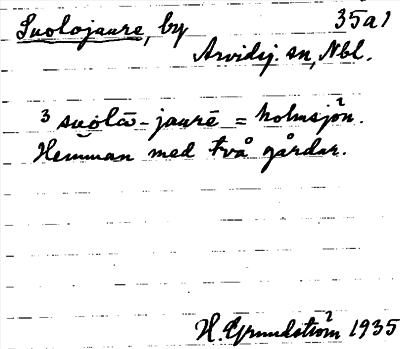 Suolojaure, by 35a1
Arvidsj. sn, Nbl.
3 suo̯lō-jaurē = holmsjön.
Hemman med två gårdar.
H. Grundström 1935